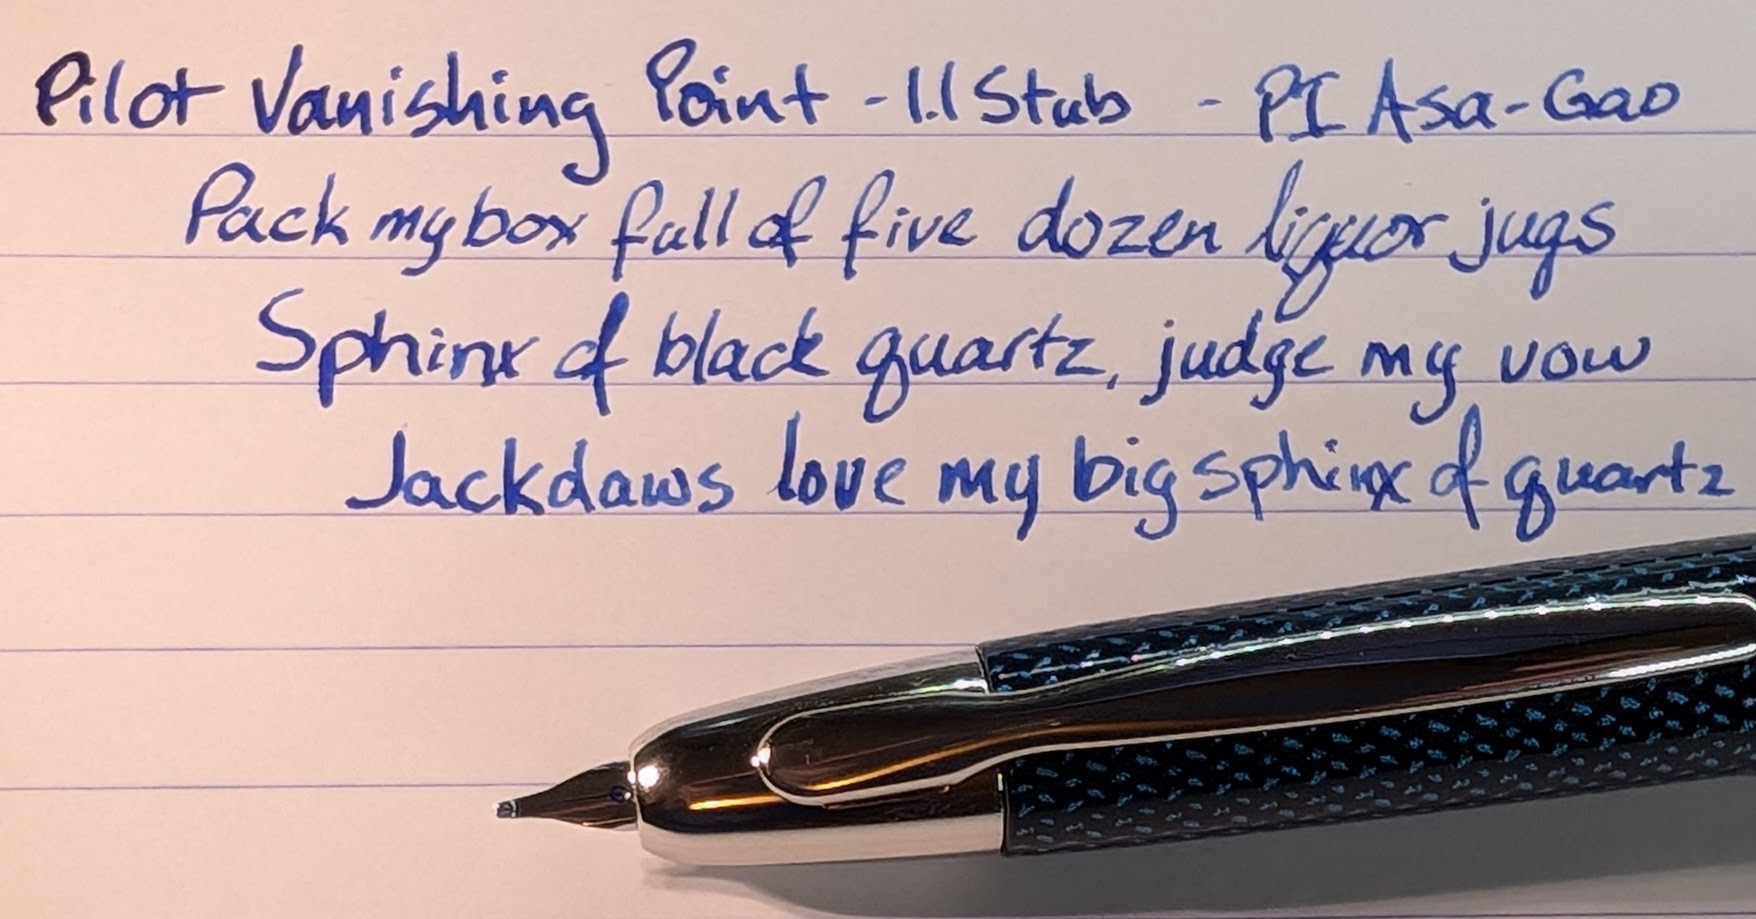 Pilot Vanishing Point - 1.1 Stub - PI Asa-Gao
Pack my box full of five dozen liquor jugs
Sphinx of black quartz, judge my vow
Jackdaws love my big sphinx of quartz